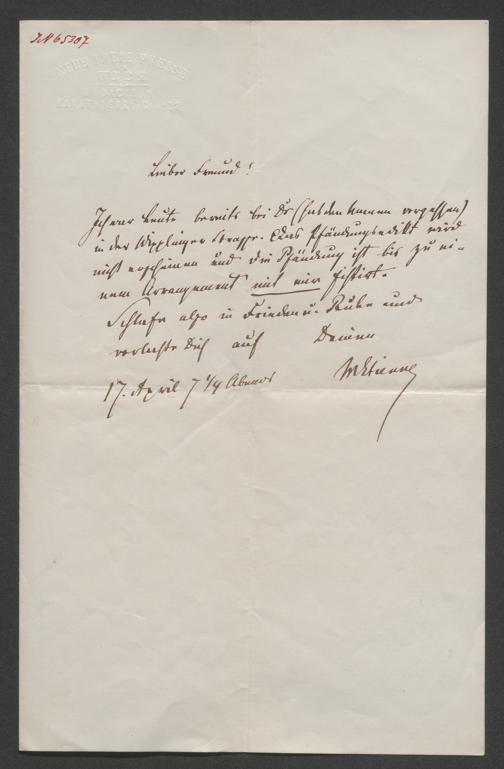 JN 65307
NEUE FREIE PRESSE
WIEN
Lieber Freund!
Ich war heute bereits bei Dr (hab den Namen vergessen)
in der Wipplinger Strasse. Das Pfändungsedikt wird
nicht erscheinen und die Pfändung ist bis zu ei-
nem Arrangement mit mir sistirt.
Schlafe also in Frieden u. Ruhe und
verlasse Dich auf Deinen
MEtienne
17. April 7 1/4 Abends